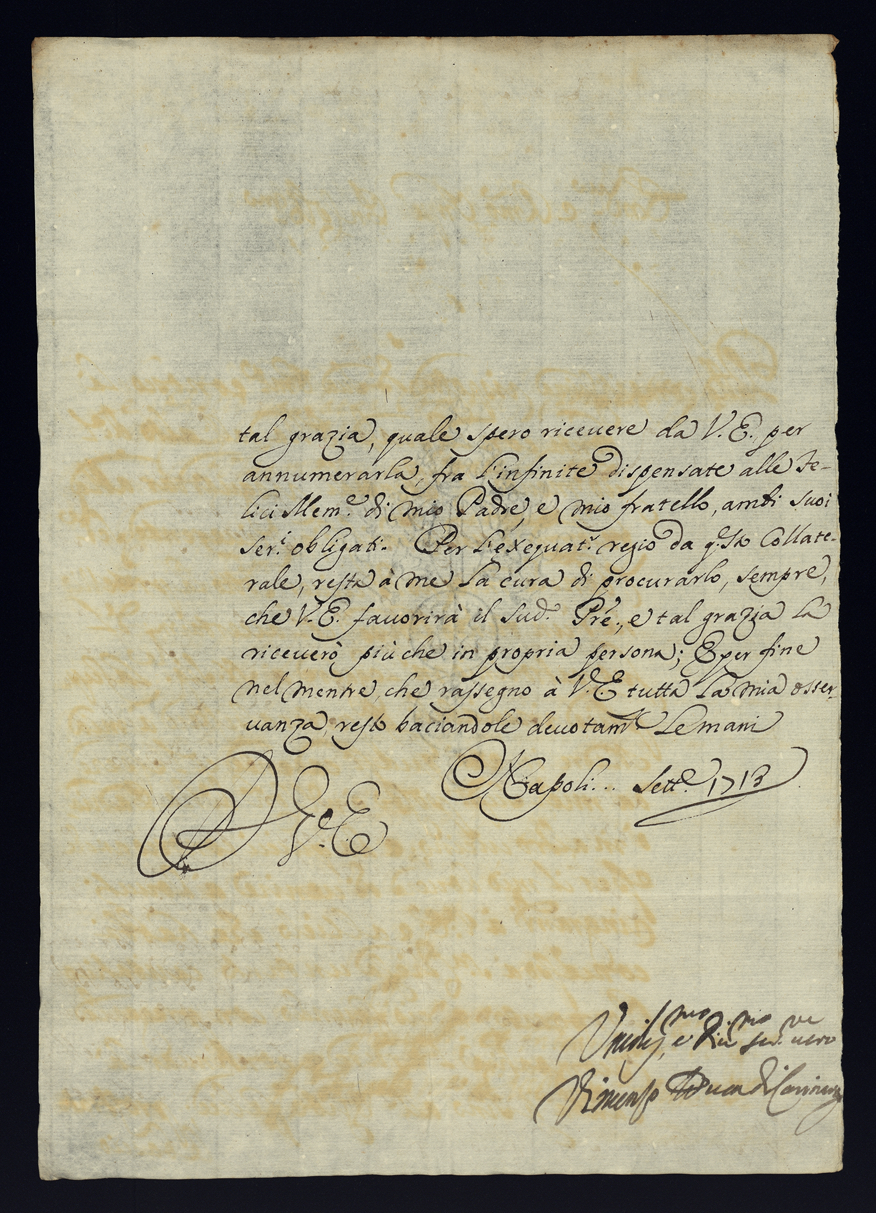 tal grazia, quale spero riceuere da V. E. per
annumerarla, fra l'infinite dispensate alle Fe-
lici Mem.e di mio Padre, e mio fratello, ambi suoi
Ser.i obligati. Per l'exequat.r regio da q.sto Collate-
rale, resta à me la cura di procurarlo, sempre,
che V. E. fauorirà il sud.o Pre., e tal grazia la
riceuerò più che in propria persona; E per fine
nel mentre che rassegno à V. E. tutta la mia osser-
uanza, resto baciandole deuotam.te le mani
Napoli... Sett.e 1713
D V. E.
Vmiliss.mo, e ser.re uero
Duca di